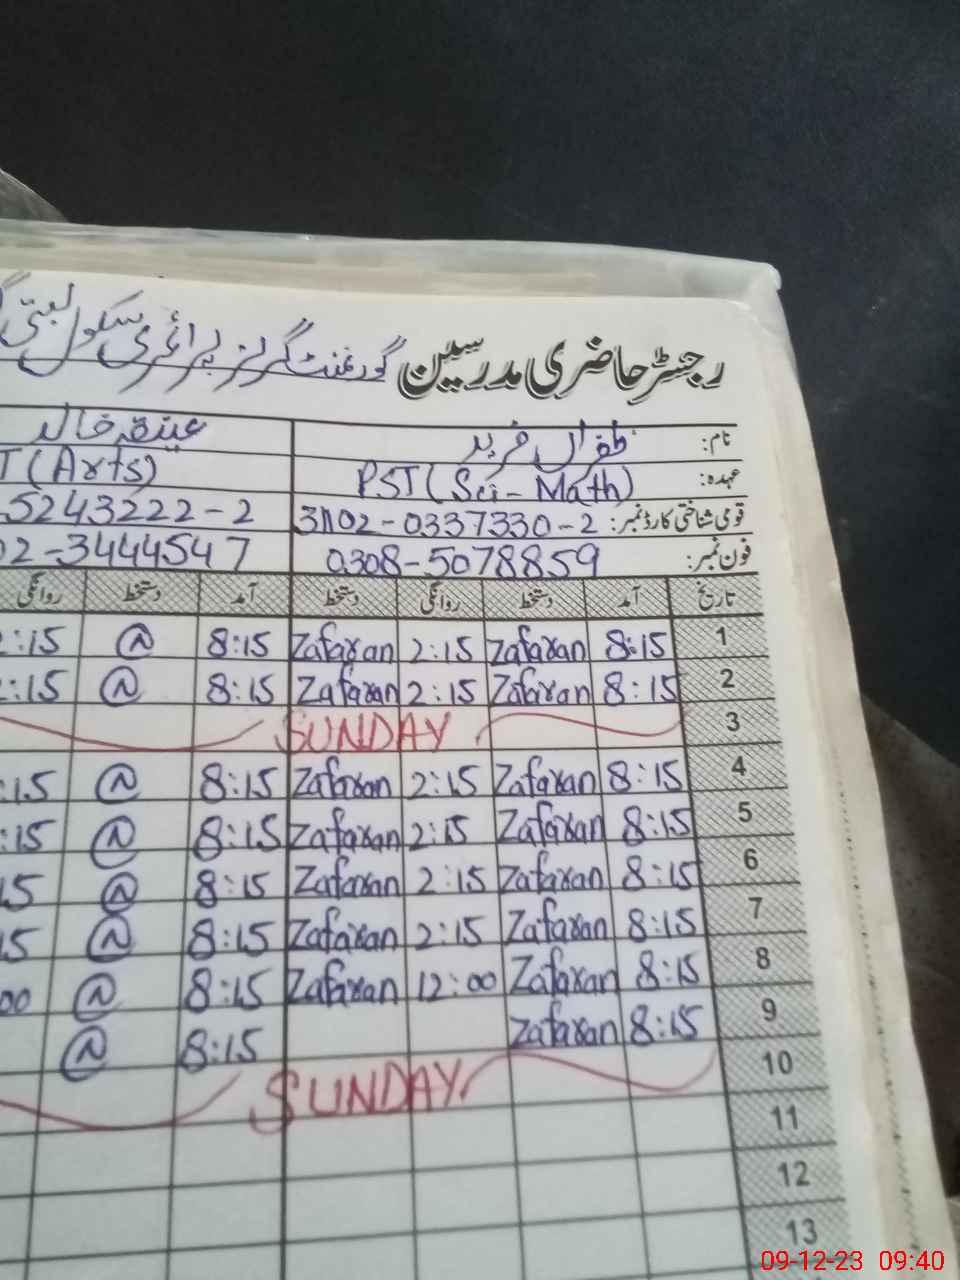 رجسٹر حاضری مدرسین گورنمنٹ گرلز پرائمری سکول بستی
نام: ظفراں فرید عینقہ خالد
عہدہ: PST (Sci - Math) T (Arts)
قومی شناختی کارڈ نمبر: 31102-0337330-2 5243222-2
فون نمبر: 0308-5078859 02-3444547
تاریخ آمد دستخط روانگی دستخط آمد دستخط روانگی
1 8:15 Zafaran 2:15 Zafaran 8:15 2:15
2 8:15 Zafaran 2:15 Zafaran 8:15 2:15
3 SUNDAY
4 8:15 Zafaran 2:15 Zafaran 8:15 :15
5 8:15 Zafaran 2:15 Zafaran 8:15 :15
6 8:15 Zafaran 2:15 Zafaran 8:15 15
7 8:15 Zafaran 2:15 Zafaran 8:15 15
8 8:15 Zafaran 12:00 Zafaran 8:15 00
9 8:15 Zafaran 8:15
10 SUNDAY
11
12
13
09-12-23 09:40